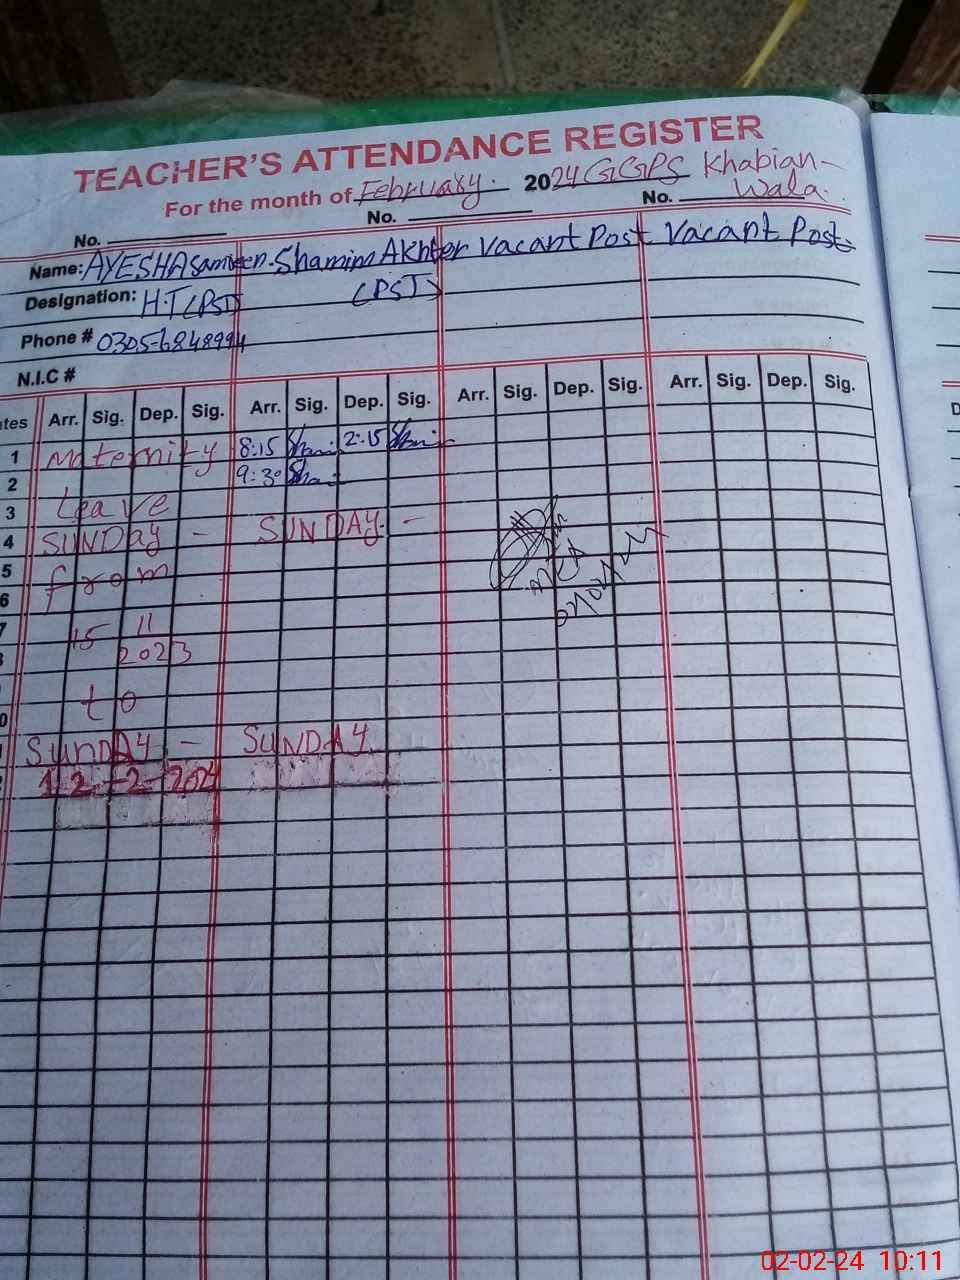 TEACHER'S ATTENDANCE REGISTER
For the month of February. 2024 GGPS Khabian-
Wala.
No. No. No.
Name: AYESHA Samreen. Shamim Akhter Vacant Post Vacant Post
Designation: H.T (PST) (PST)
Phone # 0305-6848994
N.I.C #
ates Arr. Sig. Dep. Sig. Arr. Sig. Dep. Sig. Arr. Sig. Dep. Sig. Arr. Sig. Dep. Sig.
1 Maternity 8:15 2:15
2 9:30
3 Leave
4 SUNDAY - SUNDAY. -
5 from
6
7 15 11
2023
to
SUNDAY - SUNDAY
12-2-2024
MEA
02/02/24
D
02-02-24 10:11